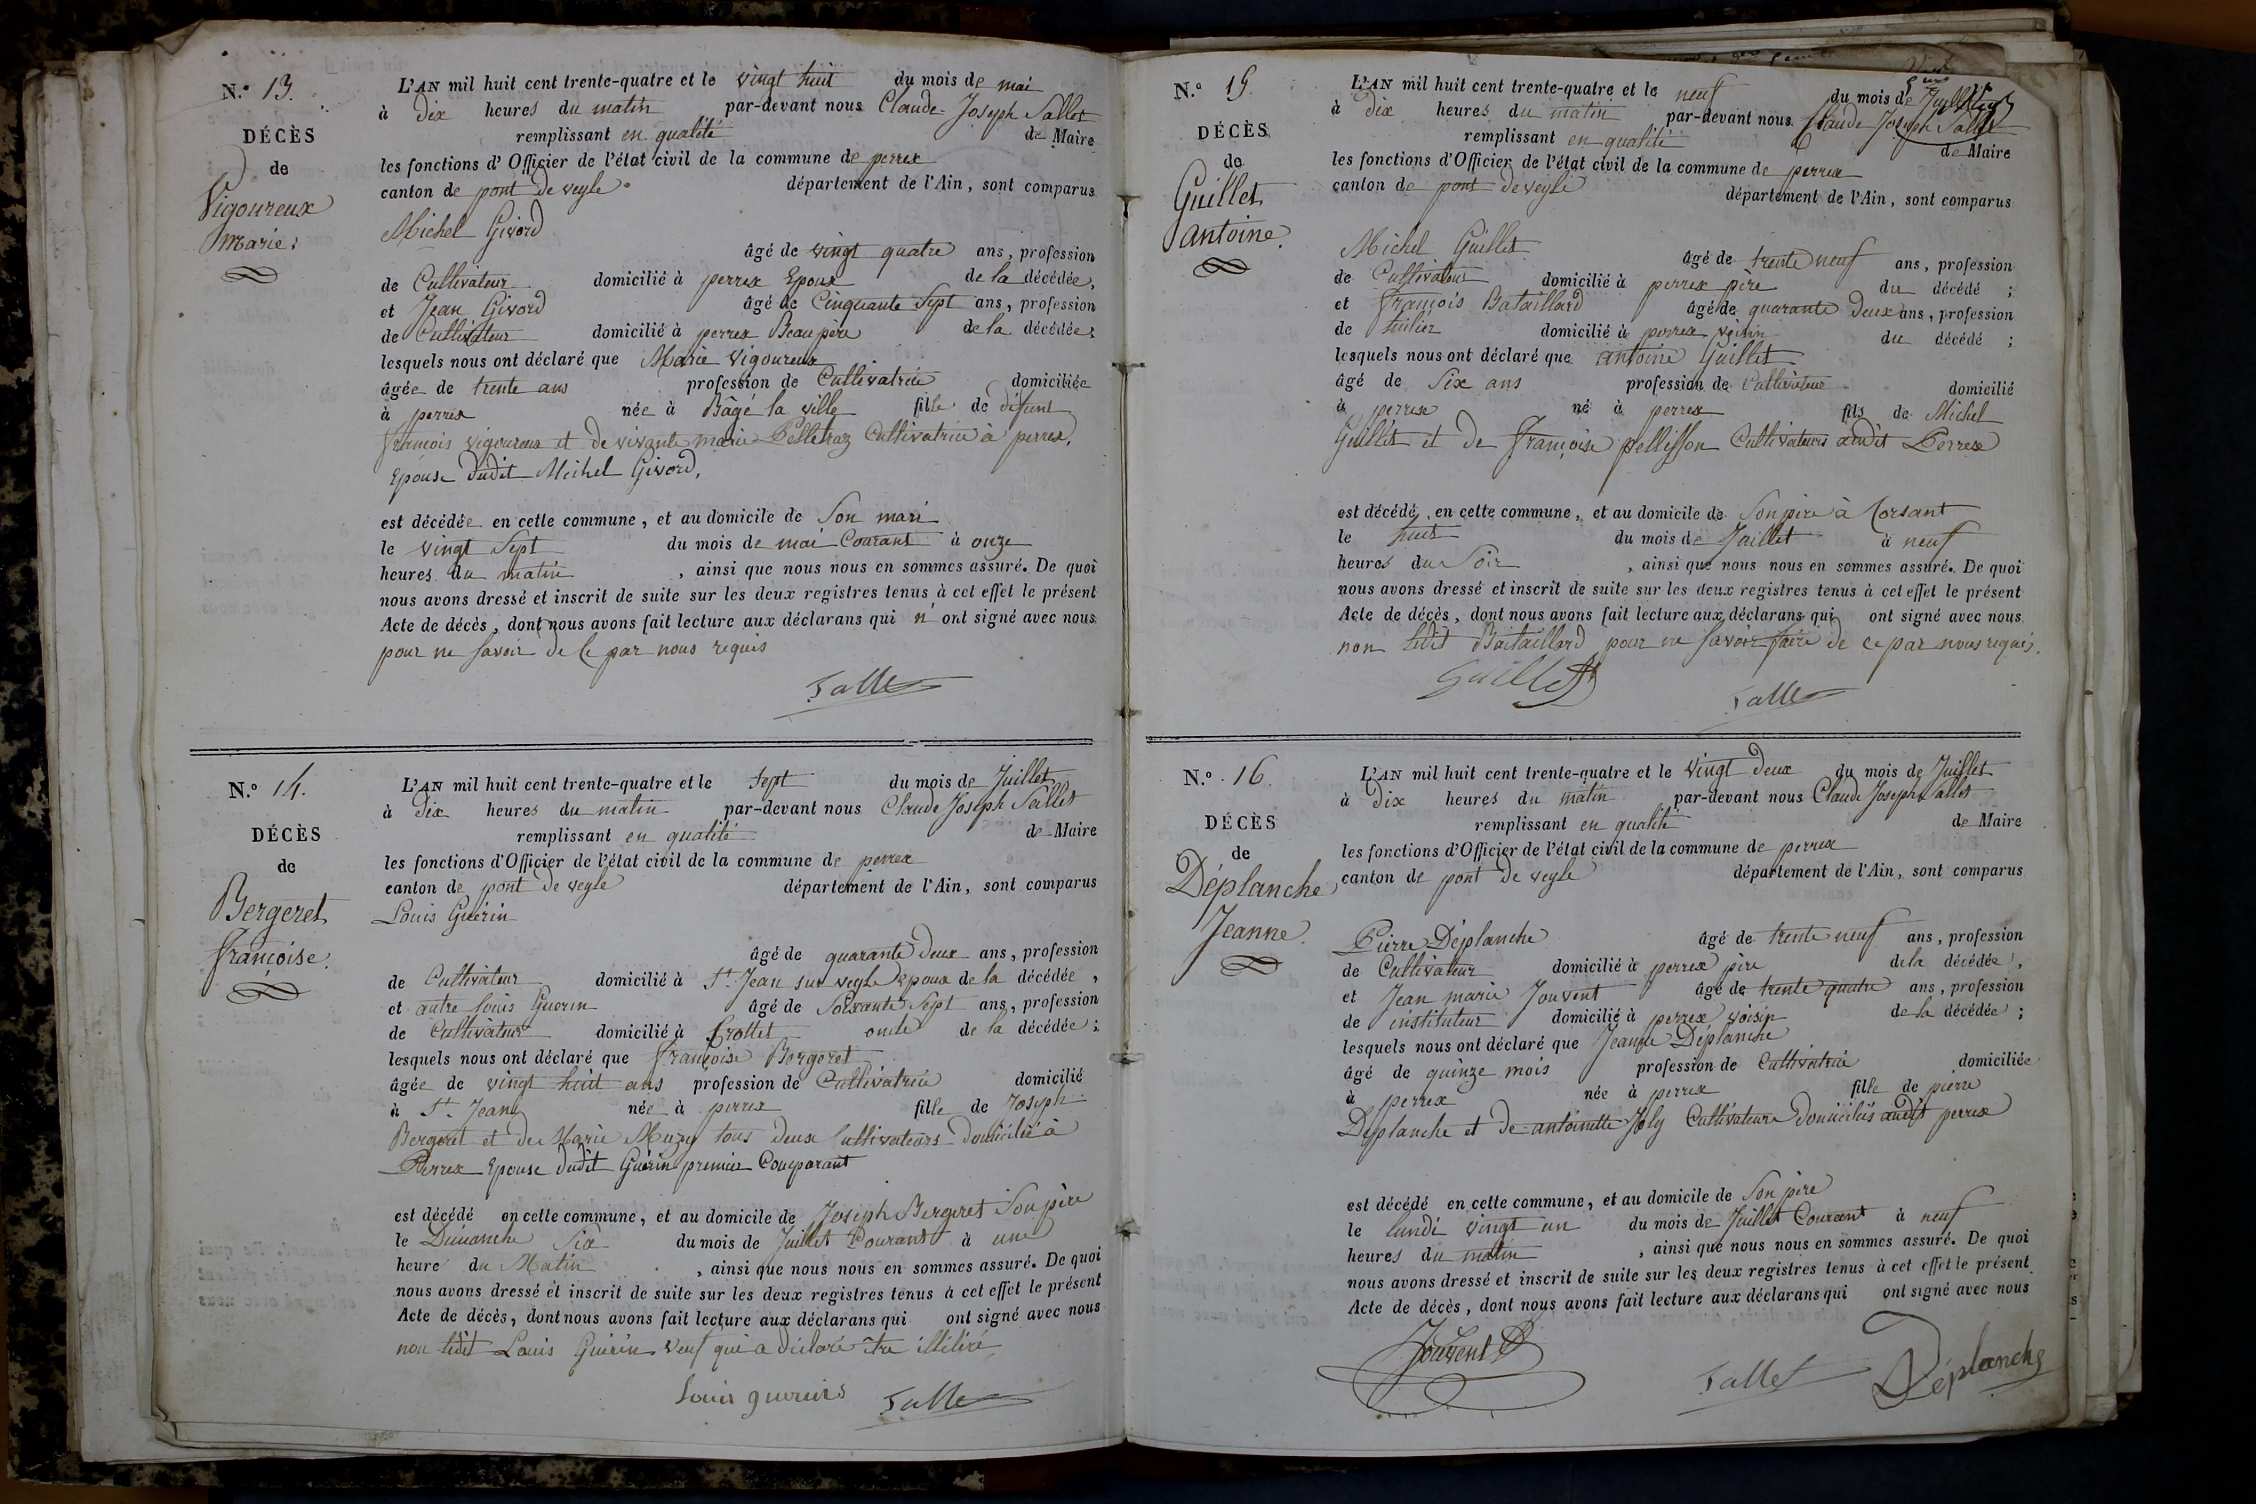 N.º 13.
DÉCÈS
de
Vigoureux
Marie.
L'AN mil huit cent trente-quatre et le vingt huit du mois de mai
à Dix heures du matin par-devant nous Claude Joseph Sallet
remplissant en qualité de Maire
les fonctions d'Officier de l'état civil de la commune de perrex
canton de pont de veyle département de l'Ain, sont comparus
Michel Givord
âgé de vingt quatre ans, profession
de Cultivateur domicilié à perrex Epoux de la décédée,
et Jean Givord âgé de Cinquante Sept ans, profession
de Cultivateur domicilié à perrex Beaupère de la décédée;
lesquels nous ont déclaré que Marie Vigoureux
âgée de trente ans profession de Cultivatrice domiciliée
à perrex née à Bâgé la ville fille de défunt
françois vigoureux et de vivante marie Pelletraz Cultivatrice à perrex,
Epouse dudit Michel Givord,
est décédée en cette commune, et au domicile de Son mari
le vingt Sept du mois de mai Courant à onze
heures du matin, ainsi que nous nous en sommes assuré. De quoi
nous avons dressé et inscrit de suite sur les deux registres tenus à cet effet le présent
Acte de décès, dont nous avons fait lecture aux déclarans qui n'ont signé avec nous
pour ne savoir de Ce par nous requis
Sallet
N.º 14.
DÉCÈS
de
Bergeret
françoise.
L'AN mil huit cent trente-quatre et le Sept du mois de Juillet
à Dix heures du matin par-devant nous Claude Joseph Sallet
remplissant en qualité de Maire
les fonctions d'Officier de l'état civil de la commune de perrex
canton de pont de veyle département de l'Ain, sont comparus
Louis Guérin
âgé de quarante Deux ans, profession
de Cultivateur domicilié à St. Jean sur veyle Epoux de la décédée,
et autre Louis Guerin âgé de Soixante Sept ans, profession
de Cultivateur domicilié à Crottet oncle de la décédée;
lesquels nous ont déclaré que françoise Bergeret
âgée de vingt huit ans profession de Cultivatrice domicilié
à St. Jean née à perrex fille de Joseph
Bergeret et de Marie Muzy tous Deux Cultivateurs domicilié à
Perrex Epouse dudit Guérin premier Comparant
est décédé en cette commune, et au domicile de Joseph Bergeret Son père
le Dimanche Six du mois de Juillet Courant à une
heure du Matin, ainsi que nous nous en sommes assuré. De quoi
nous avons dressé et inscrit de suite sur les deux registres tenus à cet effet le présent
Acte de décès, dont nous avons fait lecture aux déclarans qui ont signé avec nous
non ledit Louis Guérin veuf qui a déclaré être illitéré
Louis guerins Sallet
N.º 15.
DÉCÈS
de
Guillet
antoine.
L'AN mil huit cent trente-quatre et le neuf du mois de Juillet
à dix heures du matin par-devant nous Claude Joseph Sallet
remplissant en qualité de Maire
les fonctions d'Officier de l'état civil de la commune de perrex
canton de pont de veyle département de l'Ain, sont comparus
Michel Guillet
âgé de trente neuf ans, profession
de Cultivateur domicilié à perrex père du décédé;
et François Bataillard âgé de quarante Deux ans, profession
de tuilier domicilié à perrex voisin du décédé;
lesquels nous ont déclaré que antoine Guillet
âgé de Six ans profession de Cultivateur domicilié
à perrex né à perrex fils de Michel
Guillet et de françoise pellisson Cultivateurs audit Perrex
est décédé en cette commune, et au domicile de Son père à Corsant
le huit du mois de Juillet à neuf
heures du Soir, ainsi que nous nous en sommes assuré. De quoi
nous avons dressé et inscrit de suite sur les deux registres tenus à cet effet le présent
Acte de décès, dont nous avons fait lecture aux déclarans qui ont signé avec nous
non ledit Bataillard pour ne savoir faire de ce par nous requis.
Guillet Sallet
N.º 16.
DÉCÈS
de
Déplanche
Jeanne.
L'AN mil huit cent trente-quatre et le Vingt Deux du mois de Juillet
à dix heures du matin par-devant nous Claude Joseph Sallet
remplissant en qualité de Maire
les fonctions d'Officier de l'état civil de la commune de perrex
canton de pont de veyle département de l'Ain, sont comparus
Pierre Déplanche âgé de trente neuf ans, profession
de Cultivateur domicilié à perrex père de la décédée,
et Jean marie Jouvent âgé de trente quatre ans, profession
de instituteur domicilié à perrex voisin de la décédée;
lesquels nous ont déclaré que Jeanne Déplanche
âgé de quinze mois profession de Cultivatrice domiciliée
à perrex née à perrex fille de pierre
Déplanche et de antoinette Joly Cultivateurs Domiciliés audit perrex
est décédé en cette commune, et au domicile de Son père
le lundi vingt un du mois de Juillet Courant à neuf
heures du matin, ainsi que nous nous en sommes assuré. De quoi
nous avons dressé et inscrit de suite sur les deux registres tenus à cet effet le présent
Acte de décès, dont nous avons fait lecture aux déclarans qui ont signé avec nous
Jouvent Sallet Déplanche